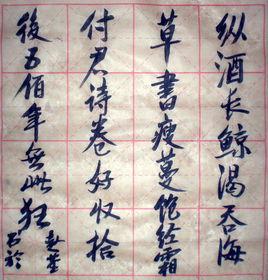 纵酒长鲸渴吞海
草書瘦蔓饱经霜
付君诗卷好收拾
後五佰年无此狂